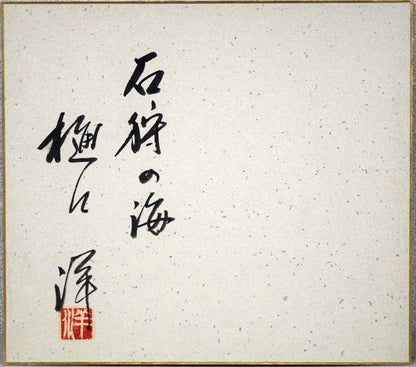 石狩の海
樋口 洋
洋